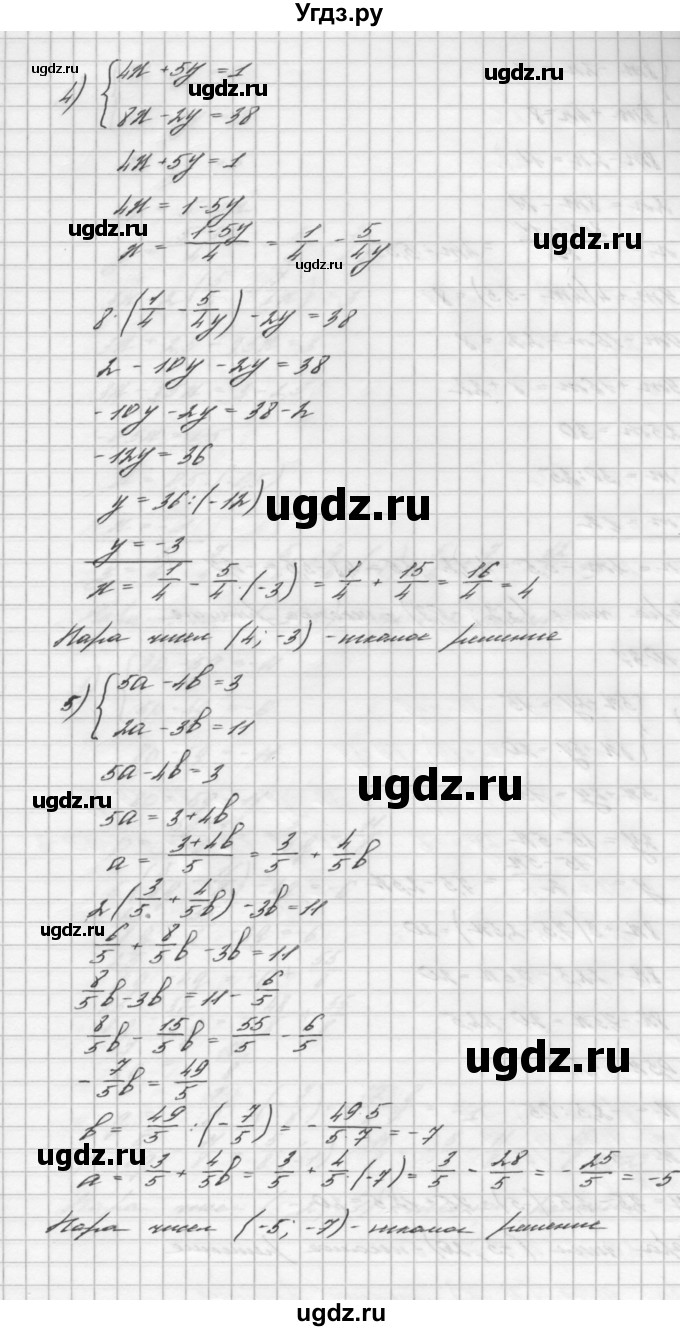 Угдз.ру
ugdz.ru
4) { 4x + 5y = 1
ugdz.ru
ugdz.ru
8x - 2y = 38
4x + 5y = 1
4x = 1 - 5y
ugdz.ru
x = (1-5y)/4 = 1/4 - 5/4y
ugdz.ru
ugdz.ru
8·(1/4 - 5/4y) - 2y = 38
2 - 10y - 2y = 38
-10y - 2y = 38 - 2
-12y = 36
y = 36:(-12)
ugdz.ru
y = -3
x = 1/4 - 5/4·(-3) = 1/4 + 15/4 = 16/4 = 4
Пара чисел (4; -3) - искомое решение
5) { 5a - 4b = 3
2a - 3b = 11
5a - 4b = 3
ugdz.ru
ugdz.ru
5a = 3 + 4b
a = (3+4b)/5 = 3/5 + 4/5b
2(3/5 + 4/5b) - 3b = 11
ugdz.ru
6/5 + 8/5b - 3b = 11
8/5b - 3b = 11 - 6/5
8/5b - 15/5b = 55/5 - 6/5
ugdz.ru
-7/5b = 49/5
b = 49/5 : (-7/5) = - 49·5/5·7 = -7
ugdz.ru
a = 3/5 + 4/5b = 3/5 + 4/5·(-7) = 3/5 - 28/5 = - 25/5 = -5
Пара чисел (-5; -7) - искомое решение
ugdz.ru